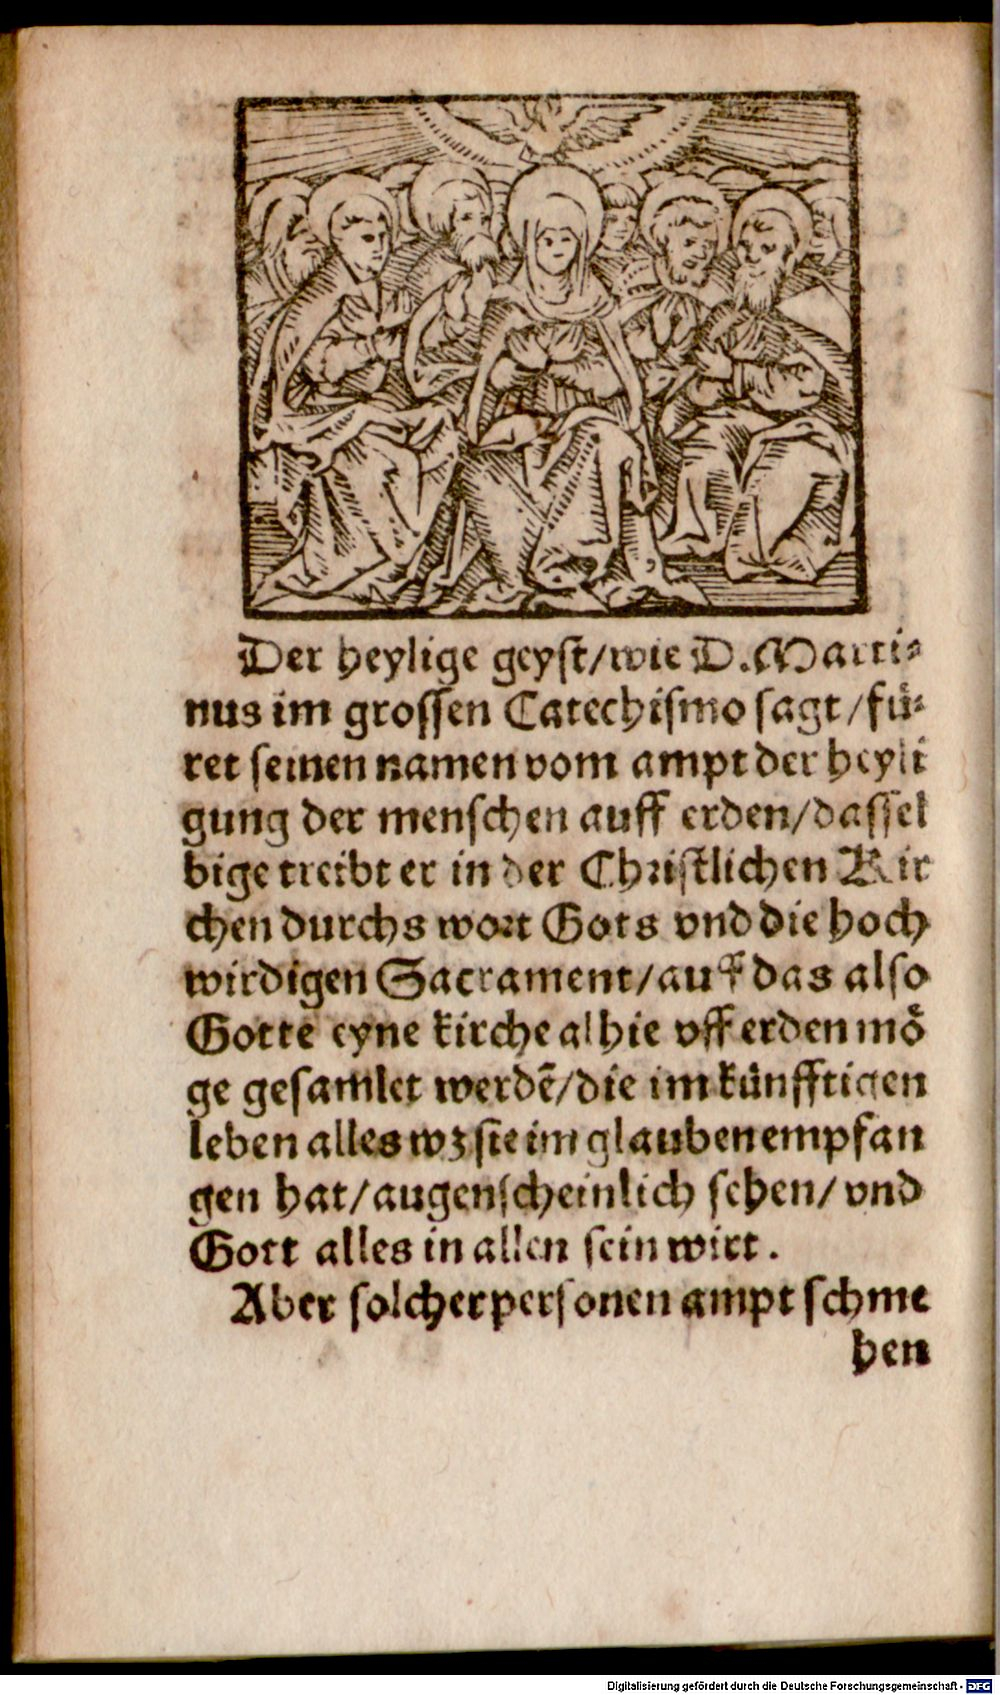 Der heylige geyst/wie D.Marti⸗
nus im grossen Catechismo sagt/fü⸗
ret seinen namen vom ampt der heyli
gung der menschen auff erden/dassel
bige treibt er in der Christlichen Kir
chen durchs wort Gots vnd die hoch
wirdigen Sacrament/auff das also
Gotte eyne kirche alhie vff erden mö
ge gesamlet werdē/die im künfftigen
leben alles wz sie im glauben empfan
gen hat/augenscheinlich sehen/vnd
Gott alles in allen sein wirt.
Aber solcher personen ampt schme
hen
Digitalisierung gefördert durch die Deutsche Forschungsgemeinschaft - DFG